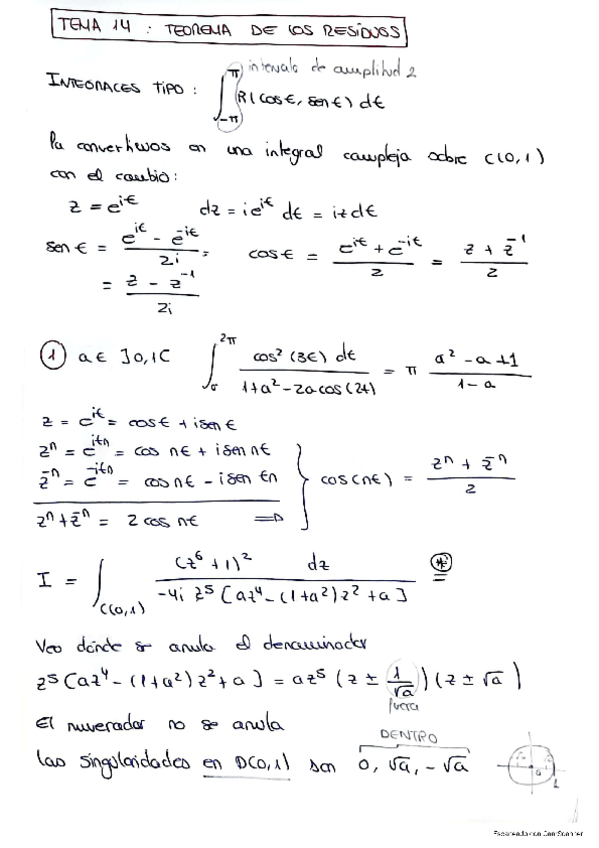 TEMA 14 : TEOREMA DE LOS RESÍDUOS
intervalo de amplitud 2
INTEGRALES TIPO : ∫_{-π}^{π} R(cos t, sen t) dt
la convertimos en una integral compleja sobre C(0,1)
con el cambio:
z = e^{it} dz = ie^{it} dt = iz dt
sen t = (e^{it} - e^{-it})/2i = cos t = (e^{it} + e^{-it})/2 = (z + z^{-1})/2
= (z - z^{-1})/2i
① a ∈ ]0,1[ ∫_0^{2π} cos²(3t) dt / (1+a²-2a cos(2t)) = π (a² - a + 1)/(1 - a)
z = e^{it} = cos t + i sen t
z^n = e^{itn} = cos nt + i sen nt
z^{-n} = e^{-itn} = cos nt - i sen tn
cos(nt) = (z^n + z^{-n})/2
z^n + z^{-n} = 2 cos nt ⟹
I = ∫_{C(0,1)} (z⁶+1)² dz / (-4i z⁵ [az⁴-(1+a²)z²+a]) (*) =
Veo dónde se anula el denominador
z⁵[az⁴-(1+a²)z²+a] = az⁵ (z ± 1/√a)(z ± √a)
fuera
El numerador no se anula
DENTRO
las singularidades en D(0,1) son 0, √a, -√a
Escaneado con CamScanner